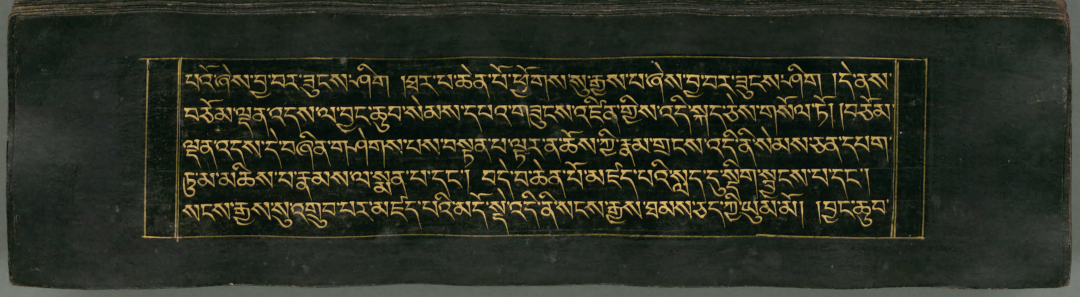 པའོ་ཞེས་བྱ་བར་ཟུངས་ཤིག །ཐར་པ་ཆེན་པོ་ཕྱོགས་སུ་རྒྱས་པ་ཞེས་བྱ་བར་ཟུངས་ཤིག །དེ་ནས་
བཅོམ་ལྡན་འདས་ལ་བྱང་ཆུབ་སེམས་དཔའ་གཟུངས་འཛིན་གྱིས་འདི་སྐད་ཅེས་གསོལ་ཏོ། །བཅོམ་
ལྡན་འདས་དེ་བཞིན་གཤེགས་པས་བསྟན་པ་ལྟར་ན་ཆོས་ཀྱི་རྣམ་གྲངས་འདི་ནི་སེམས་ཅན་དཔག་
ཏུ་མ་མཆིས་པ་རྣམས་ལ་སྨན་པ་དང་། བདེ་བ་ཆེན་པོ་མཛད་པའི་སླད་དུ་སྡིག་སྦྱངས་པ་དང་།
སངས་རྒྱས་སུ་འགྲུབ་པར་མཛད་པའི་མདོ་སྡེ་འདི་ནི་སངས་རྒྱས་ཐམས་ཅད་ཀྱི་ཡུམ་མོ། །བྱང་ཆུབ་